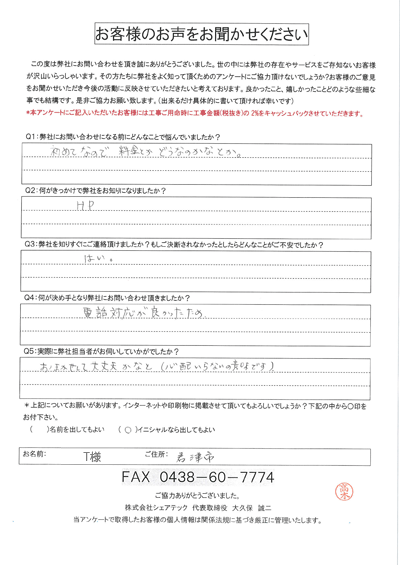 お客様のお声をお聞かせください
この度は弊社にお問い合わせを頂き誠にありがとうございました。世の中には弊社の存在やサービスをご存知ないお客様
が沢山いらっしゃいます。その方たちに弊社をよく知って頂くためのアンケートにご協力頂けないでしょうか?お客様のご意見
をお聞かせいただき今後の活動に反映させていただきたいと考えております。良かったこと、嬉しかったことどのような些細な
事でも結構です。是非ご協力お願い致します。(出来るだけ具体的に書いて頂ければ幸いです)
*本アンケートにご記入いただいたお客様には工事ご用命時に工事金額(税抜き)の 2%をキャッシュバックさせていただきます。
Q1:弊社にお問い合わせになる前にどんなことで悩んでいましたか?
初めてなので 料金とか どうなのかなとか。
Q2:何がきっかけで弊社をお知りになりましたか?
HP
Q3:弊社を知りすぐにご連絡頂けましたか?もしご決断されなかったとしたらどんなことがご不安でしたか?
はい。
Q4:何が決め手となり弊社にお問い合わせ頂きましたか?
電話対応が良かったため
Q5:実際に弊社担当者がお伺いしていかがでしたか?
おまかせして大丈夫かなと (心配いらないの意味です)
*上記についてお願いがあります。インターネットや印刷物に掲載させて頂いてもよろしいでしょうか?下記の中から〇印を
お付下さい。
( )名前を出してもよい ( ○ )イニシャルなら出してもよい
お名前: T様 ご住所: 君津市
FAX 0438-60-7774
ご協力ありがとうございました。
株式会社シェアテック 代表取締役 大久保 誠二
当アンケートで取得したお客様の個人情報は関係法規に基づき厳正に管理いたします。
高木